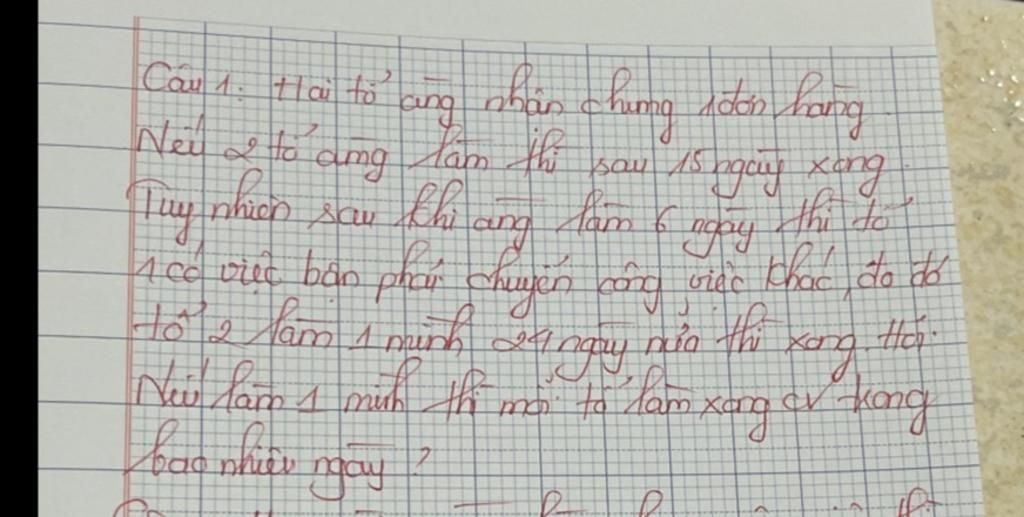 Câu 1: Hai tổ cùng nhận chung 1 đơn hàng
Nếu 2 tổ cùng làm thì sau 15 ngày xong.
Tuy nhiên sau khi cùng làm 6 ngày thì tổ
1 có việc bận phải chuyển công việc khác, do đó
tổ 2 làm 1 mình 24 ngày nữa thì xong. Hỏi
Nếu làm 1 mình thì mỗi tổ làm xong cv trong
bao nhiêu ngày?